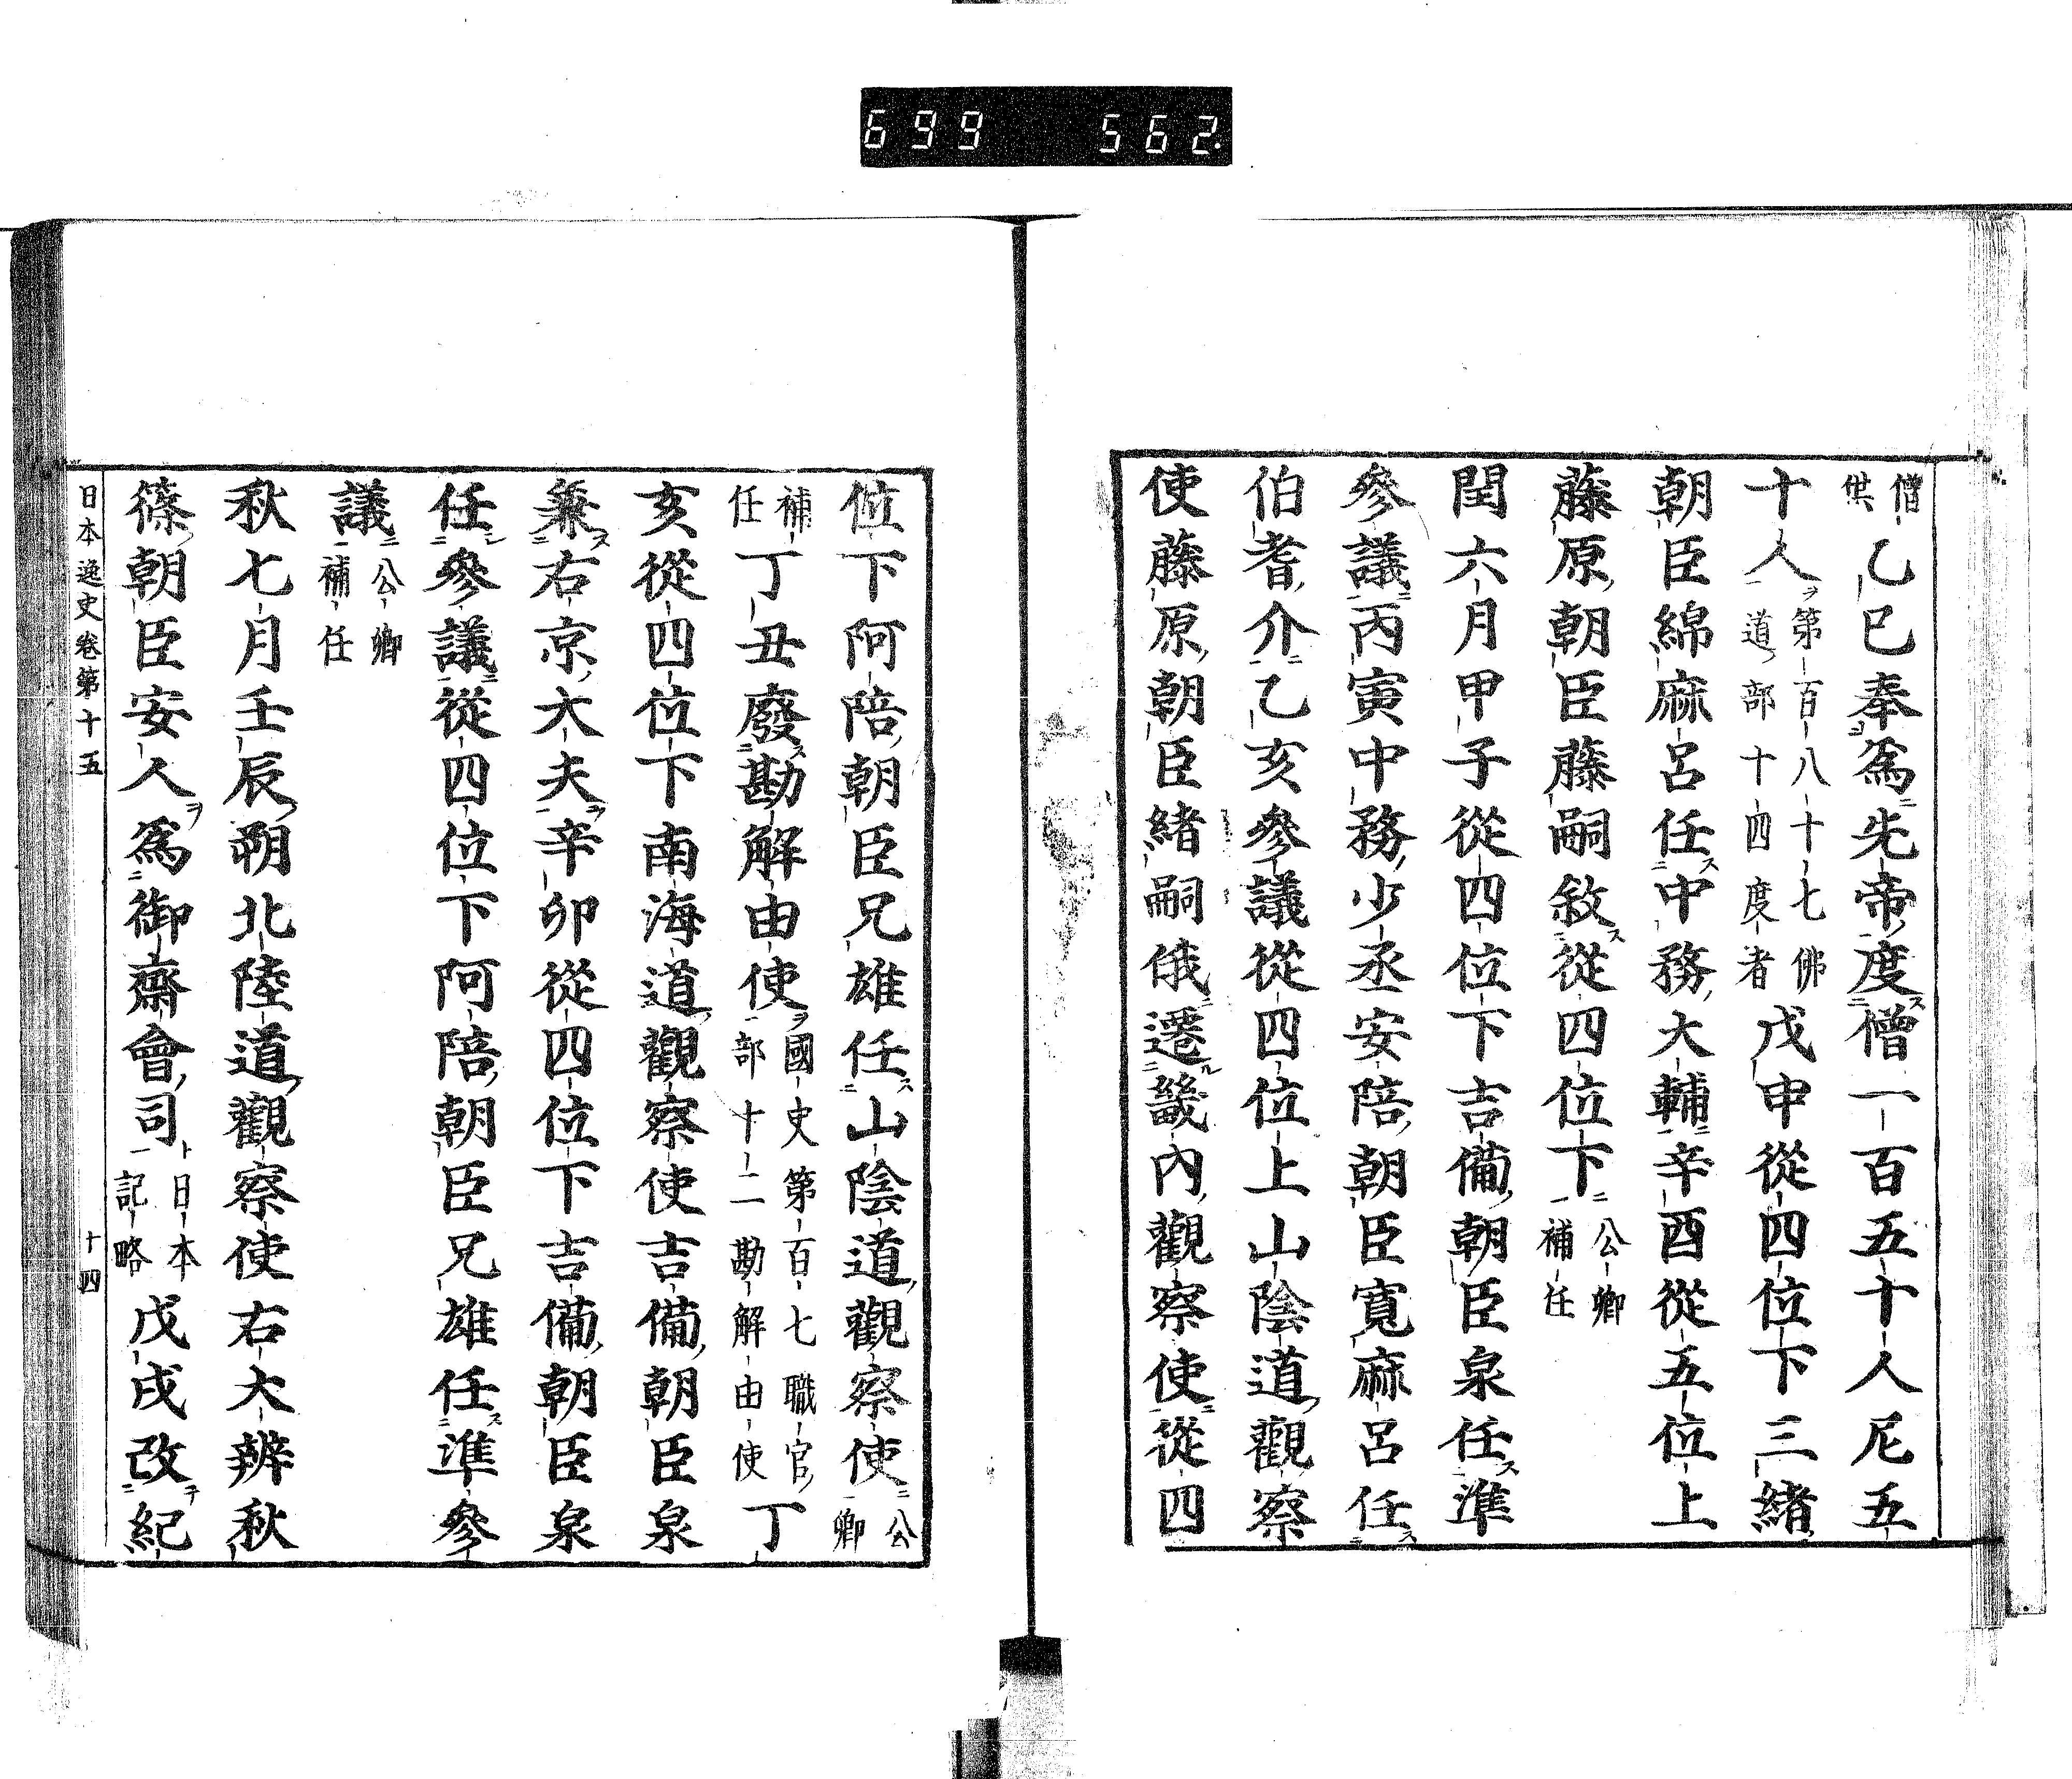 699 562
僧供乙巳奉爲先帝度僧一百五十人尼五
十人第百八十七佛道部十四度者戊申從四位下三緒
朝臣綿麻呂任中務大輔辛酉從五位上
藤原朝臣藤嗣敘從四位下公卿補任
閏六月甲子從四位下吉備朝臣泉任準
參議丙寅中務少丞安陪朝臣寬麻呂任
伯耆介乙亥參議從四位上山陰道觀察
使藤原朝臣緒嗣俄遷畿內觀察使從四
位下阿陪朝臣兄雄任山陰道觀察使公卿
補任丁丑廢勘解由使國史第百七職官部十二勘解由使丁
亥從四位下南海道觀察使吉備朝臣泉
兼右京大夫辛卯從四位下吉備朝臣泉
任參議從四位下阿陪朝臣兄雄任準參
議公卿補任
秋七月壬辰朔北陸道觀察使右大辨秋
篠朝臣安人爲御齋會司日本記略戊戌改紀
日本逸史卷第十五 十四